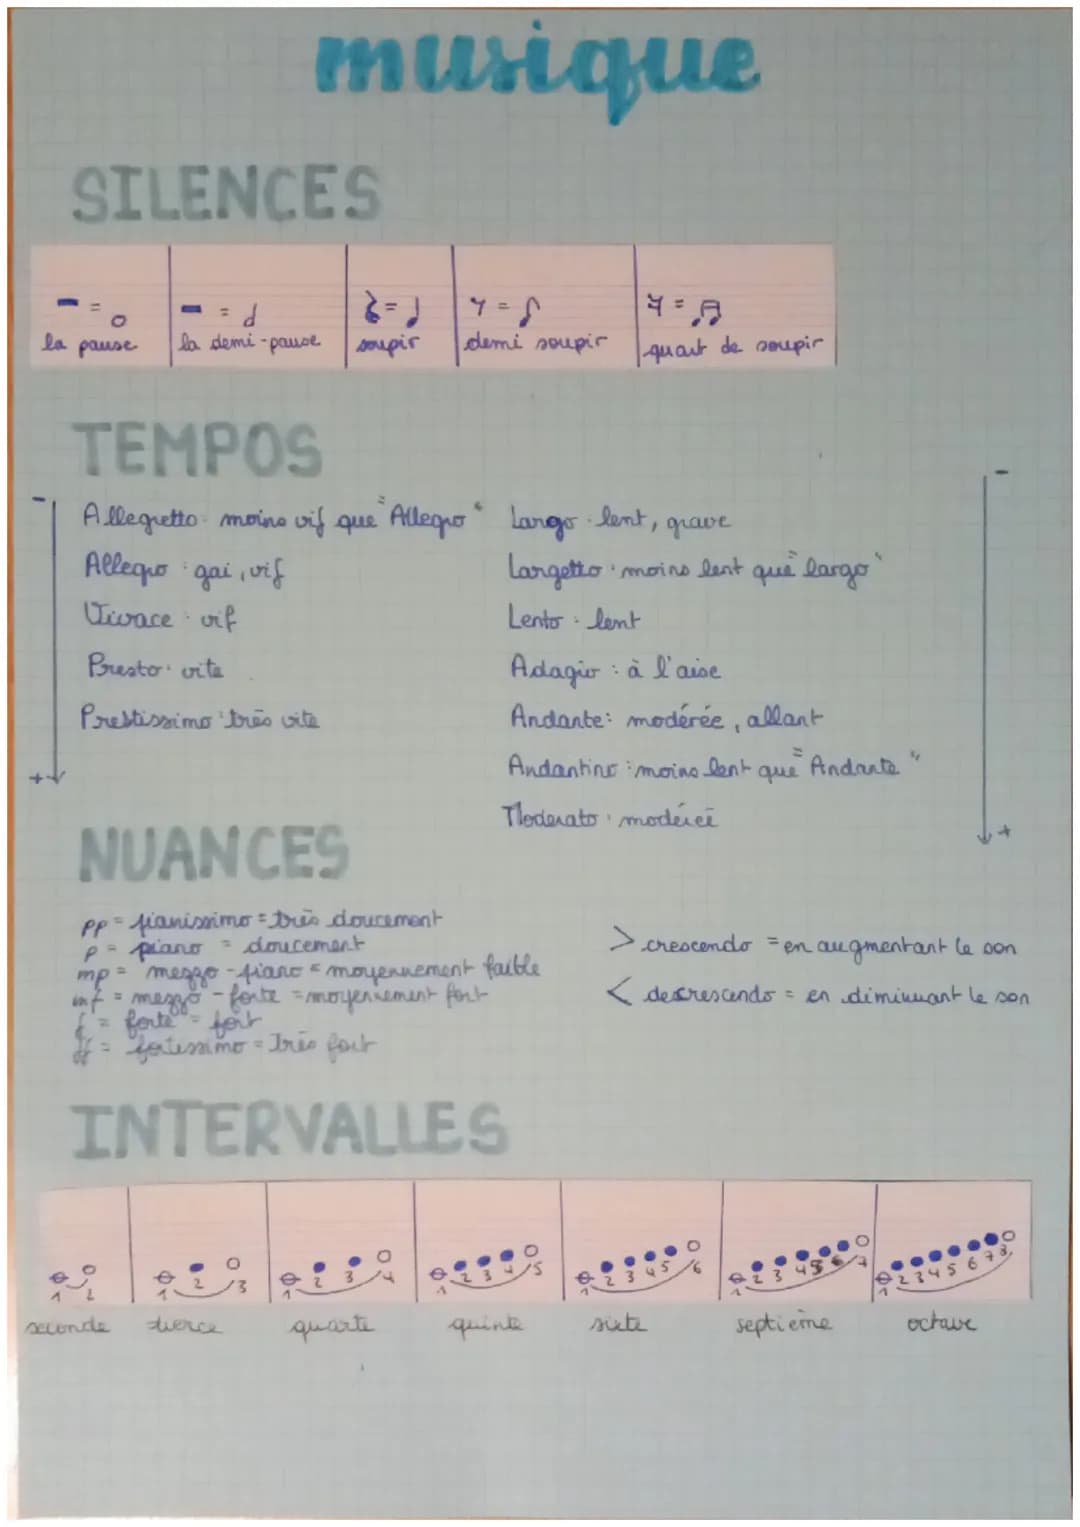 musique
SILENCES
= la pause
= la demi-pause
= soupir
= demi soupir
= quart de soupir
TEMPOS
-
Allegretto : moins vif que "Allegro"
Allegro : gai, vif
Vivace : vif
Presto : vite
Prestissimo : très vite
+
-
Largo : lent, grave
Largetto : moins lent que "largo"
Lento : lent
Adagio : à l'aise
Andante : modérée, allant
Andantino : moins lent que "Andante"
Moderato : modéréé
+
NUANCES
pp = pianissimo = très doucement
p = piano = doucement
mp = mezzo-piano = moyennement faible
mf = mezzo-forte = moyennement fort
f = forte = fort
ff = fortissimo = très fort
> crescendo = en augmentant le son
< descrescendo = en diminuant le son
INTERVALLES
1 2
1 2 3
1 2 3 4
1 2 3 4 5
1 2 3 4 5 6
1 2 3 4 5 6 7
1 2 3 4 5 6 7 8
seconde tierce quarte quinte sixte septième octave